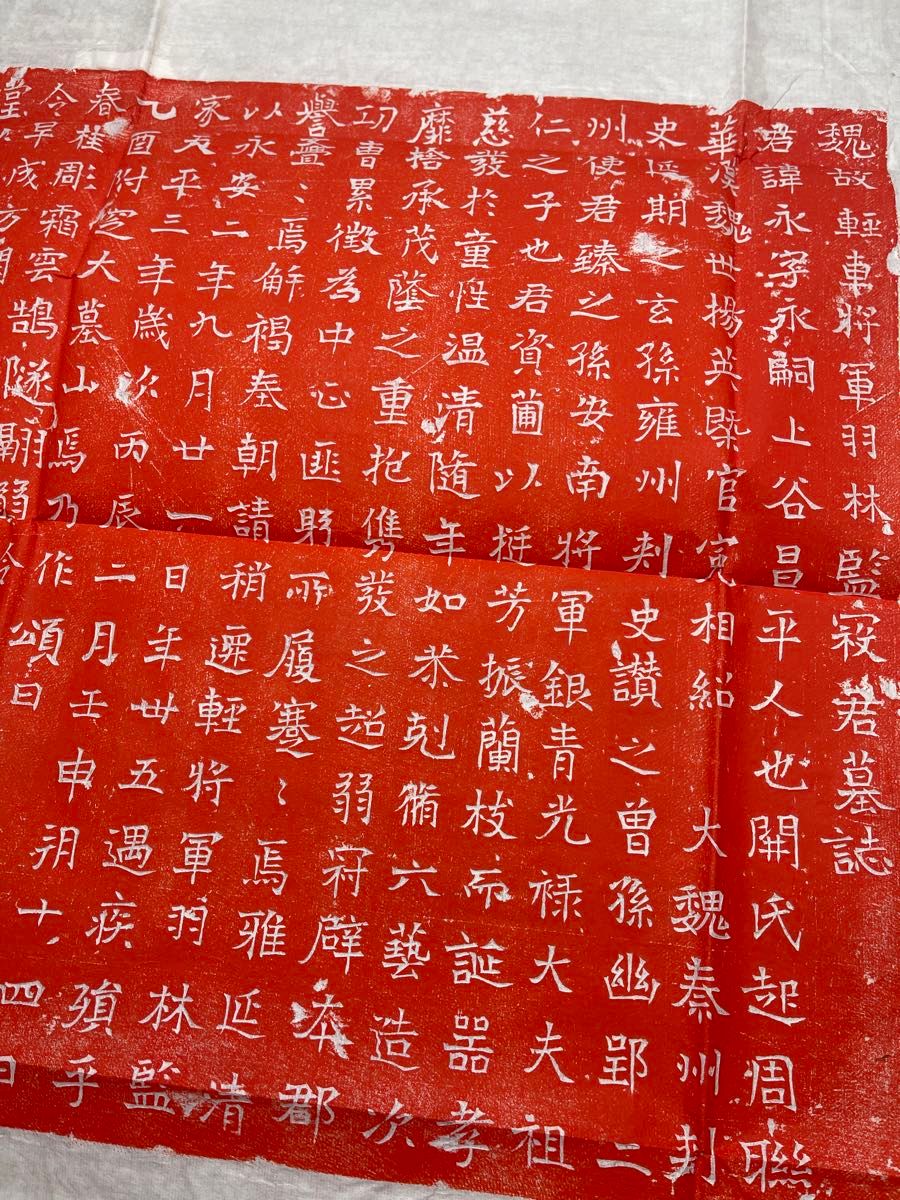 魏故輕車將軍羽林監寇君墓誌
君諱永字永嗣上谷昌平人也開氏起周聯
華漢魏世揚英槩官冕相紹 大魏秦州刾
史延期之玄孫雍州刾史讃之曾孫豳郢二
州使君臻之孫安南將軍銀青光祿大夫祖
仁之子也君資蘭以挺芳振蘭枝而誕器孝
慈發於童性温清隨年如恭剋脩六藝造次
靡捨承茂蔭之重抱雋發之超弱冠辟本郡
功曹累徵為中正匪躬所履蹇〻焉雅延清
譽亹〻焉解褐奉朝請稍遷輕將軍羽林監
以永安二年九月廿一日年卅五遇疾殞乎
家天平三年歲次丙辰二月壬申朔十四日
乙酉附窆大墓山焉乃作頌曰
春桂彫霜雲鵠隧翮
今早成
堂